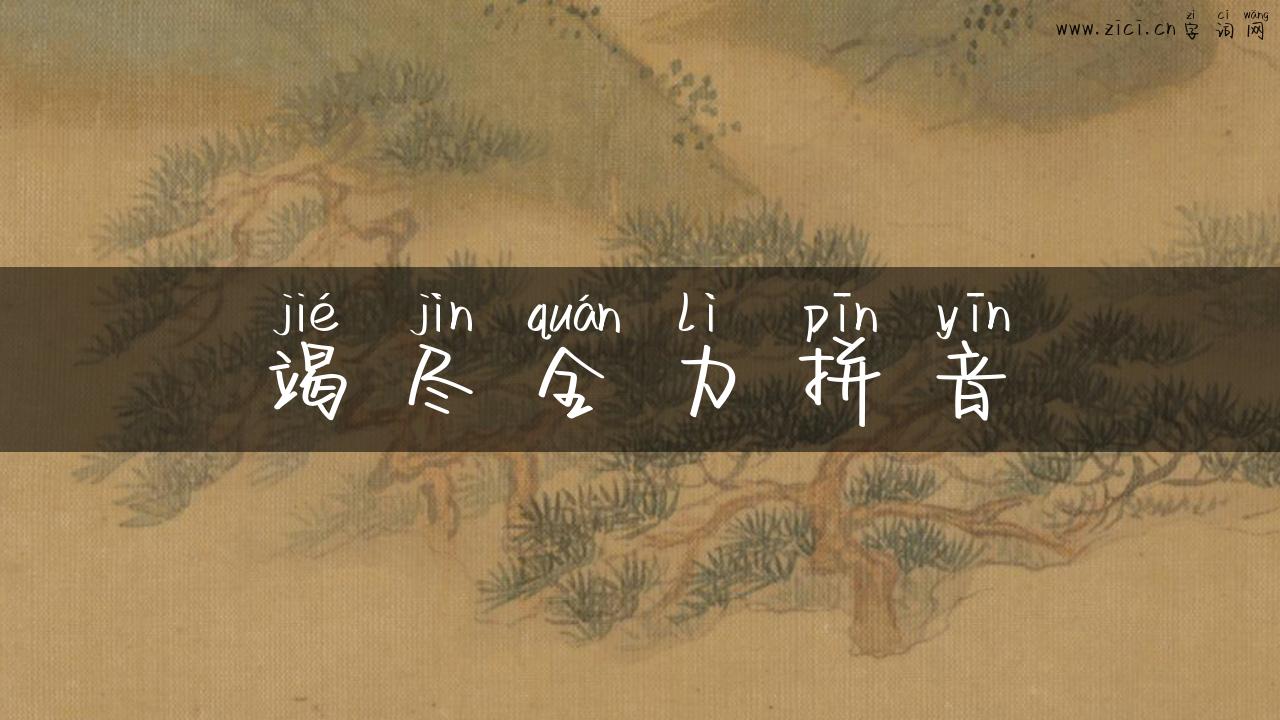 zì cí wǎng
www.zici.cn 字词网
jié jìn quán lì pīn yīn
竭尽全力拼音